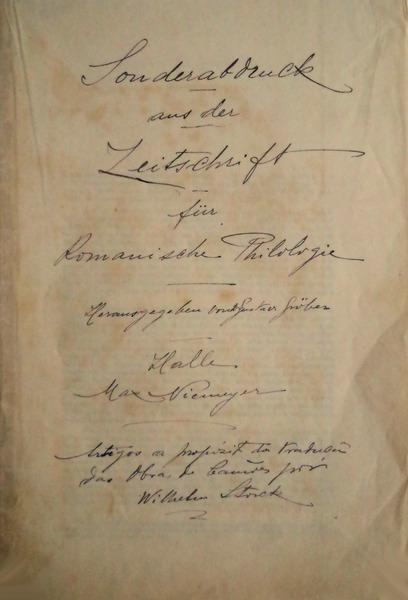 Sonderabdruck
aus der
Zeitschrift
für
Romanische Philologie
Herausgegeben von Gustav Gröber
Halle
Max Niemeyer
Artigos a propósit da traducção
das Obras de Camões por
Wilhelm Storck